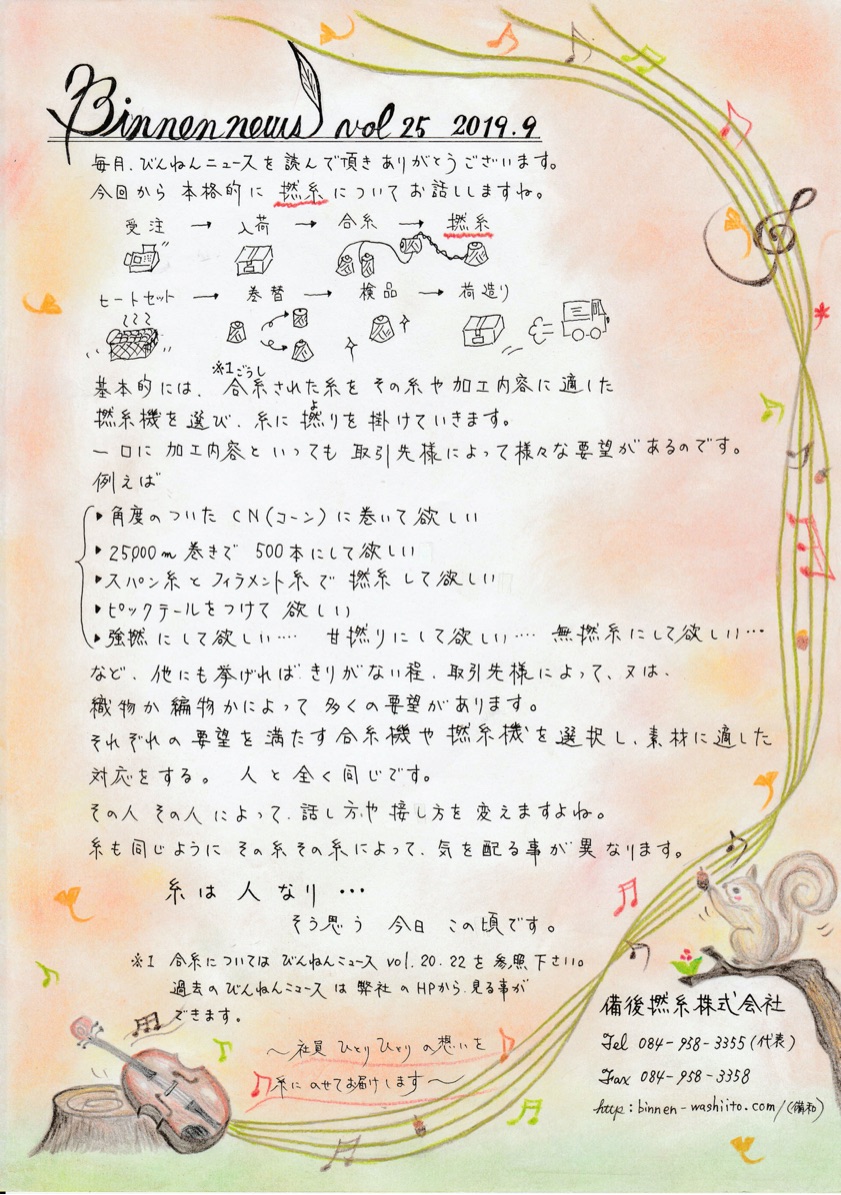 Binnen news vol 25 2019.9
毎月、びんねんニュースを読んで頂きありがとうございます。
今回から本格的に撚糸についてお話ししますね。
受注 → 入荷 → 合糸 → 撚糸
ヒートセット → 巻替 → 検品 → 荷造り
※1ごうし
基本的には、合糸された糸をその糸や加工内容に適した
よ
撚糸機を選び、糸に撚りを掛けていきます。
一口に加工内容といっても取引先様によって様々な要望があるのです。
例えば
▶角度のついたCN(コーン)に巻いて欲しい
▶25,000m巻きで500本にして欲しい
▶スパン糸とフィラメント糸で撚糸して欲しい
▶ピックテールをつけて欲しい
▶強撚にして欲しい‥‥ 甘撚りにして欲しい‥‥ 無撚糸にして欲しい…
など、他にも挙げればきりがない程、取引先様によって、又は、
織物か編物かによって多くの要望があります。
それぞれの要望を満たす合糸機や撚糸機を選択し、素材に適した
対応をする。 人と全く同じです。
その人その人によって、話し方や接し方を変えますよね。
糸も同じようにその糸その糸によって、気を配る事が異なります。
糸は人なり…
そう思う今日この頃です。
※1 合糸についてはびんねんニュースvol.20.22を参照下さい。
過去のびんねんニュースは弊社のHPから見る事が
できます。
〜社員ひとりひとりの想いを
糸にのせてお届けします〜
備後撚糸株式会社
Tel 084-958-3355(代表)
Fax 084-958-3358
http:binnen-washiito.com/(備和)